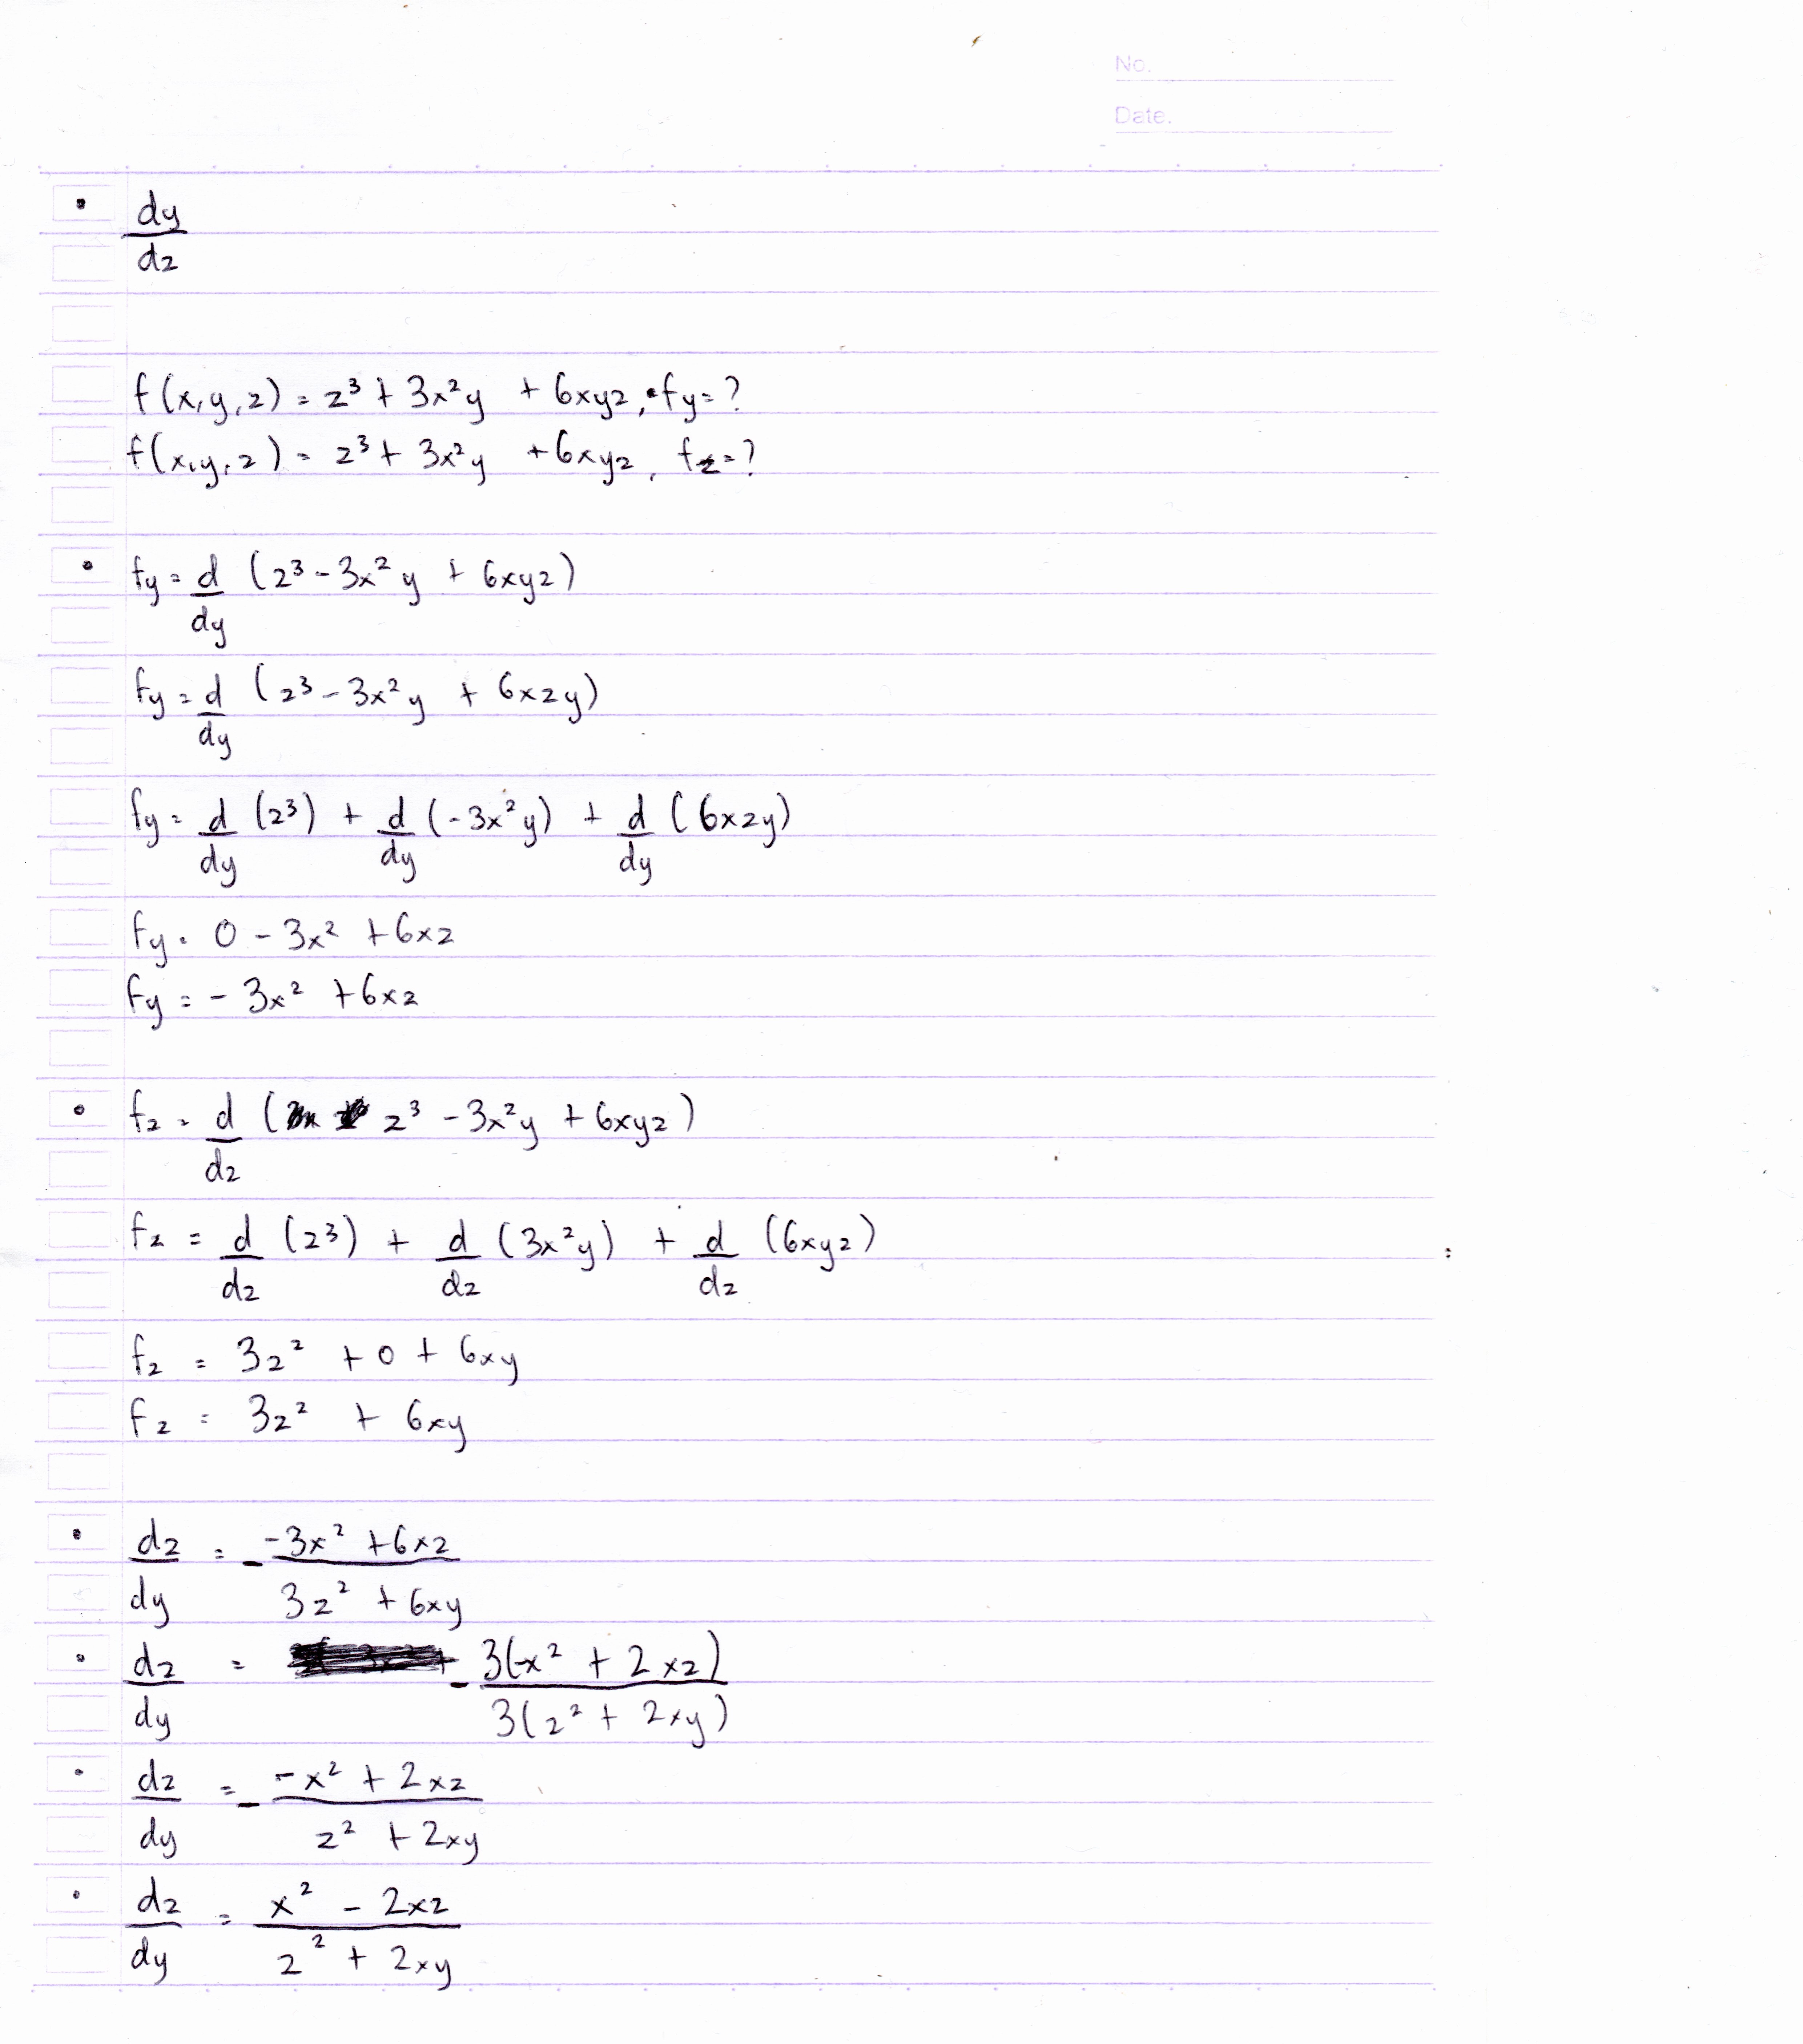 No.
Date.
• dy/dz
f(x,y,z) = z³ + 3x²y + 6xyz, fy = ?
f(x,y,z) = z³ + 3x²y + 6xyz, fz = ?
• fy = d/dy (z³ - 3x²y + 6xyz)
fy = d/dy (z³ - 3x²y + 6xzy)
fy = d/dy (z³) + d/dy (-3x²y) + d/dy (6xzy)
fy = 0 - 3x² + 6xz
fy = - 3x² + 6xz
• fz = d/dz (z³ - 3x²y + 6xyz)
fz = d/dz (z³) + d/dz (3x²y) + d/dz (6xyz)
fz = 3z² + 0 + 6xy
fz = 3z² + 6xy
• dz/dy = - (-3x² + 6xz)/(3z² + 6xy)
• dz/dy = - 3(-x² + 2xz)/3(z² + 2xy)
• dz/dy = - (-x² + 2xz)/(z² + 2xy)
• dz/dy = (x² - 2xz)/(z² + 2xy)